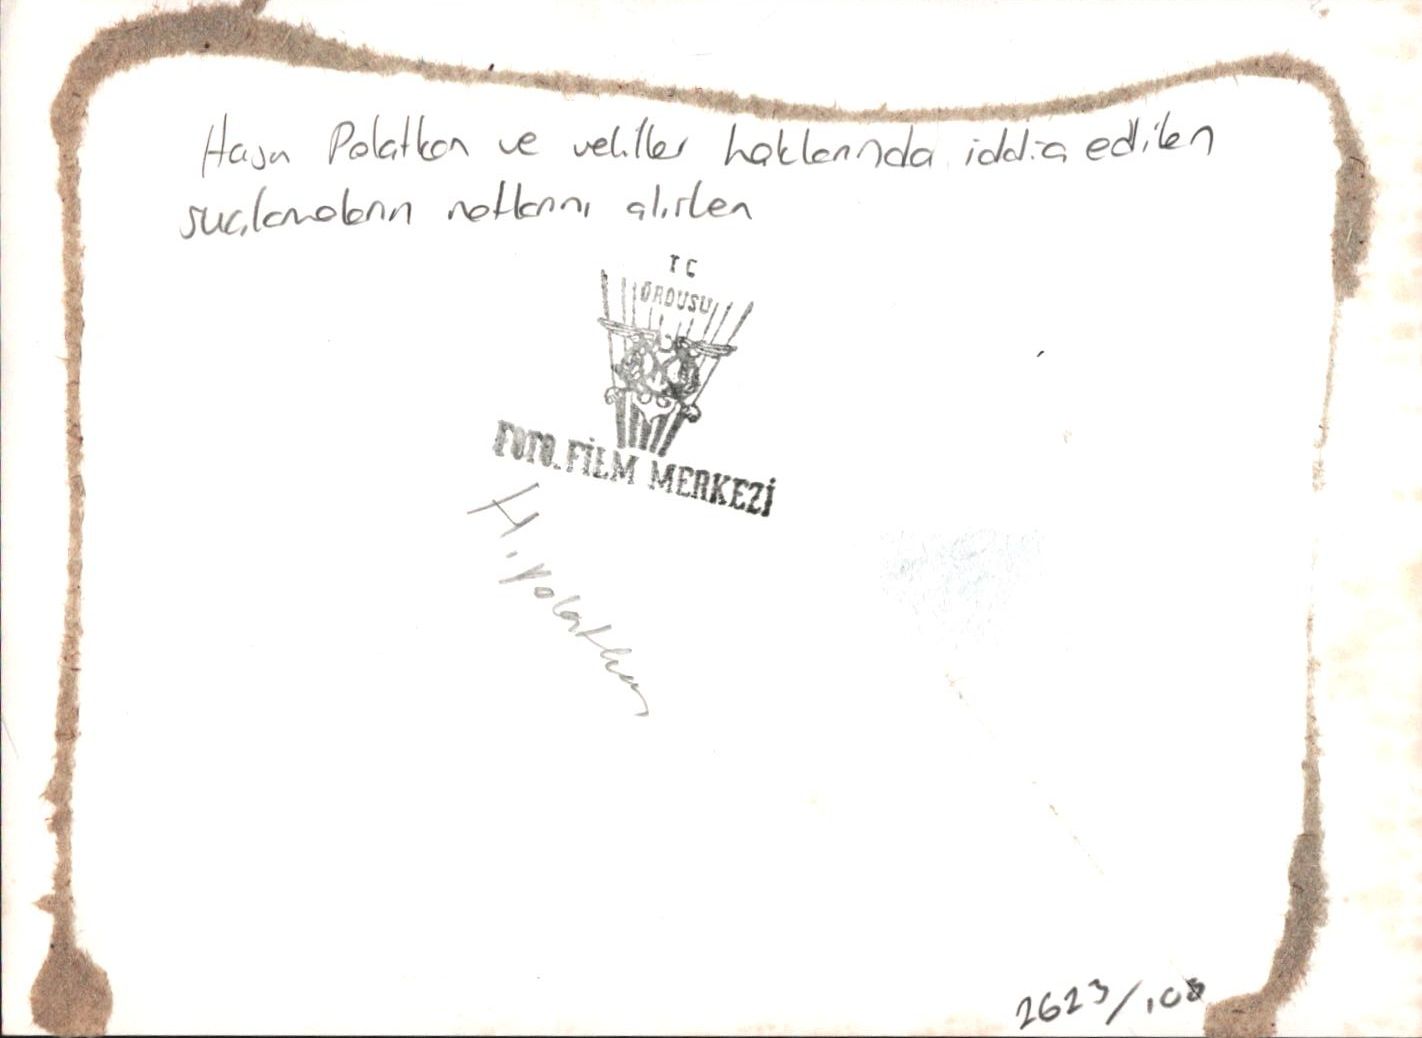 Hasan Polatkan ve vekiller haklarında iddia edilen
suçlamaların notlarını alırken
T C
ORDUSU
FOTO. FİLM MERKEZİ
H. Polatkan
2623/108